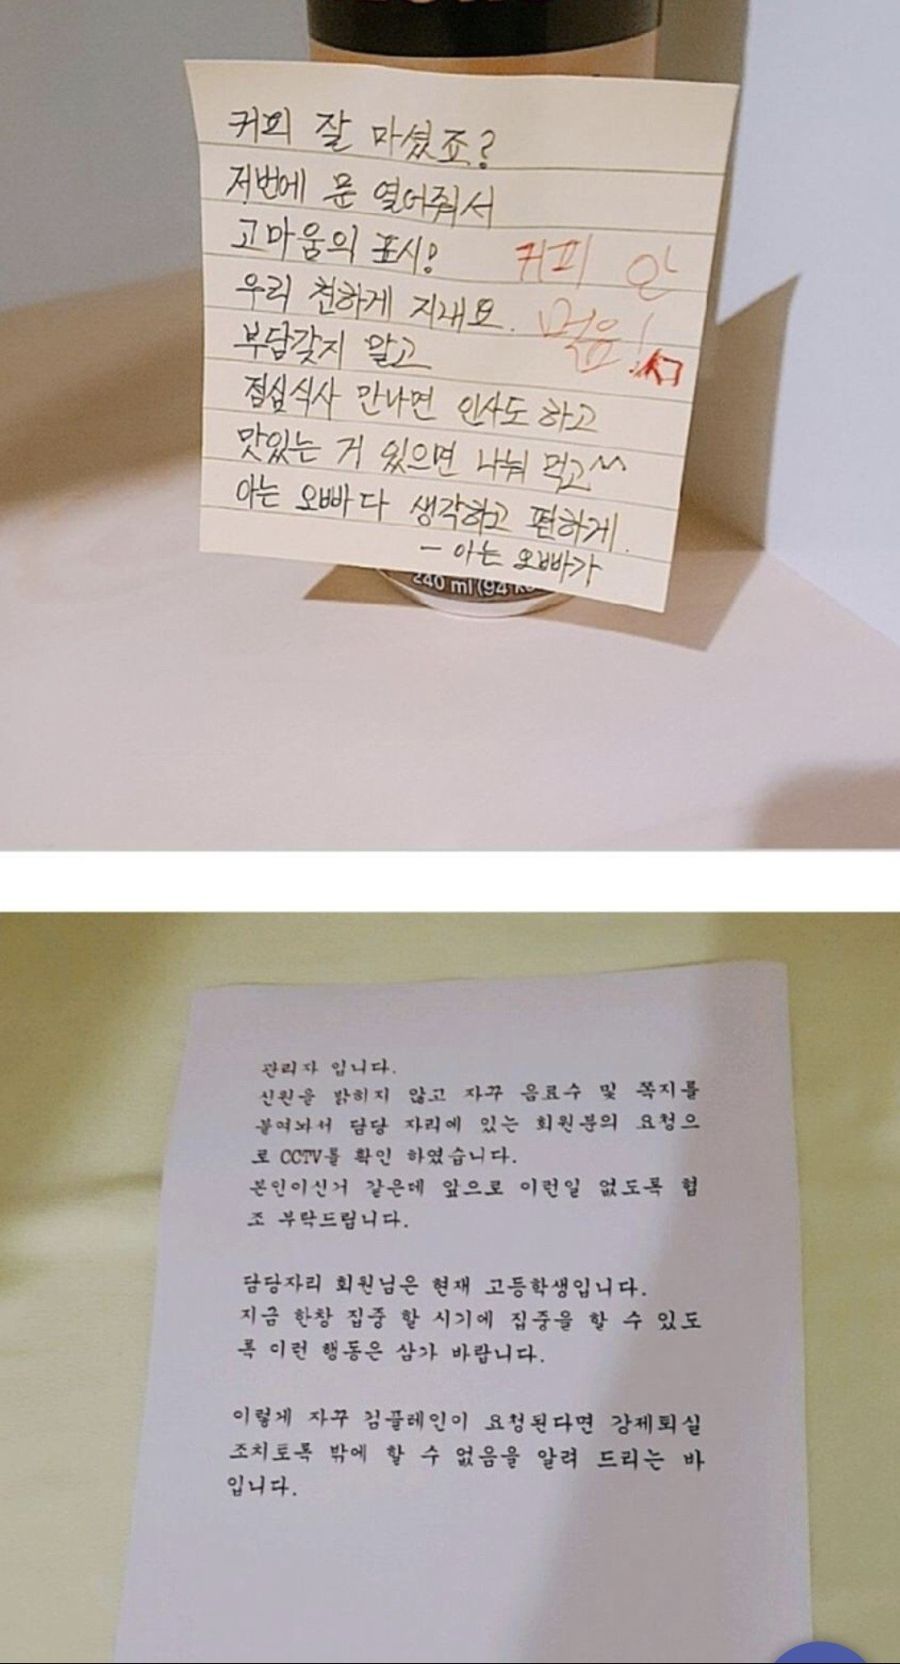 커피 잘 마셨죠?
저번에 문 열어줘서
고마움의 표시!
커피 안
먹음!
우리 친하게 지내요.
부담갖지 말고
점심식사 만나면 인사도 하고
맛있는 거 있으면 나눠 먹고^^
아는 오빠다 생각하고 편하게.
- 아는 오빠가
240 ml (94
관리자 입니다.
신원을 밝히지 않고 자꾸 음료수 및 쪽지를
붙여놔서 담당 자리에 있는 회원분의 요청으
로 CCTV를 확인 하였습니다.
본인이신거 같은데 앞으로 이런일 없도록 협
조 부탁드립니다.
담당자리 회원님은 현재 고등학생입니다.
지금 한창 집중 할 시기에 집중을 할 수 있도
록 이런 행동은 삼가 바랍니다.
이렇게 자꾸 컴플레인이 요청된다면 강제퇴실
조치토록 밖에 할 수 없음을 알려 드리는 바
입니다.